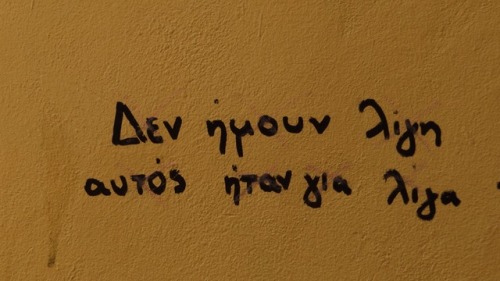 Δεν ήμουν λίγη
αυτός ήταν για λίγα